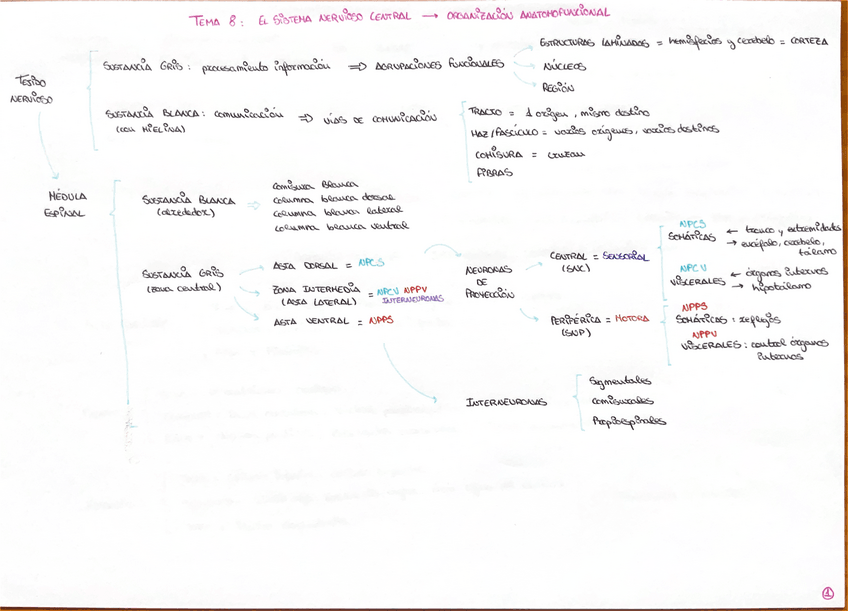 TEMA 8: EL SISTEMA NERVIOSO CENTRAL → ORGANIZACIÓN ANATOMOFUNCIONAL
TEJIDO
NERVIOSO
SUSTANCIA GRIS: procesamiento información ⇒ AGRUPACIONES FUNCIONALES
ESTRUCTURAS LAMINADAS = hemisferios y cerebelo = CORTEZA
NÚCLEOS
REGIÓN
SUSTANCIA BLANCA: comunicación ⇒ VÍAS DE COMUNICACIÓN
(con MIELINA)
TRACTO = 1 origen, mismo destino
HAZ/FASCÍCULO = varios orígenes, varios destinos
COMISURA = cruzan
FIBRAS
MÉDULA
ESPINAL
SUSTANCIA BLANCA
(alrededor)
⇒
Comisura Blanca
columna blanca dorsal
columna blanca lateral
columna blanca ventral
SUSTANCIA GRIS
(zona central)
ASTA DORSAL = NPCS
ZONA INTERMEDIA = NPCV NPPV
(ASTA LATERAL) INTERNEURONAS
ASTA VENTRAL = NPPS
NEURONAS
DE
PROYECCIÓN
CENTRAL = SENSORIAL
(SNC)
NPCS
SOMÁTICAS ← tronco y extremidades
→ encéfalo, cerebelo,
tálamo
NPCV
VISCERALES ← órganos internos
→ hipotálamo
PERIFÉRICA = MOTORA
(SNP)
NPPS
SOMÁTICAS: reflejos
NPPV
VISCERALES: control órganos
internos
INTERNEURONAS
Segmentales
Comisurales
Propioespinales
1